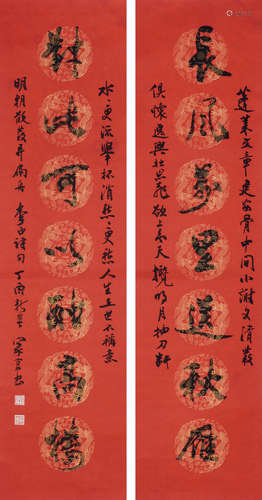 蓬萊文章建安骨中間小謝又清發
長風萬里送秋雁
俱懷逸興壯思飛欲上青天攬明月抽刀斷
水水更流舉杯消愁愁更愁人生在世不稱意
對此可以酣高樓
明朝散髮弄扁舟 李白詩句 丁酉